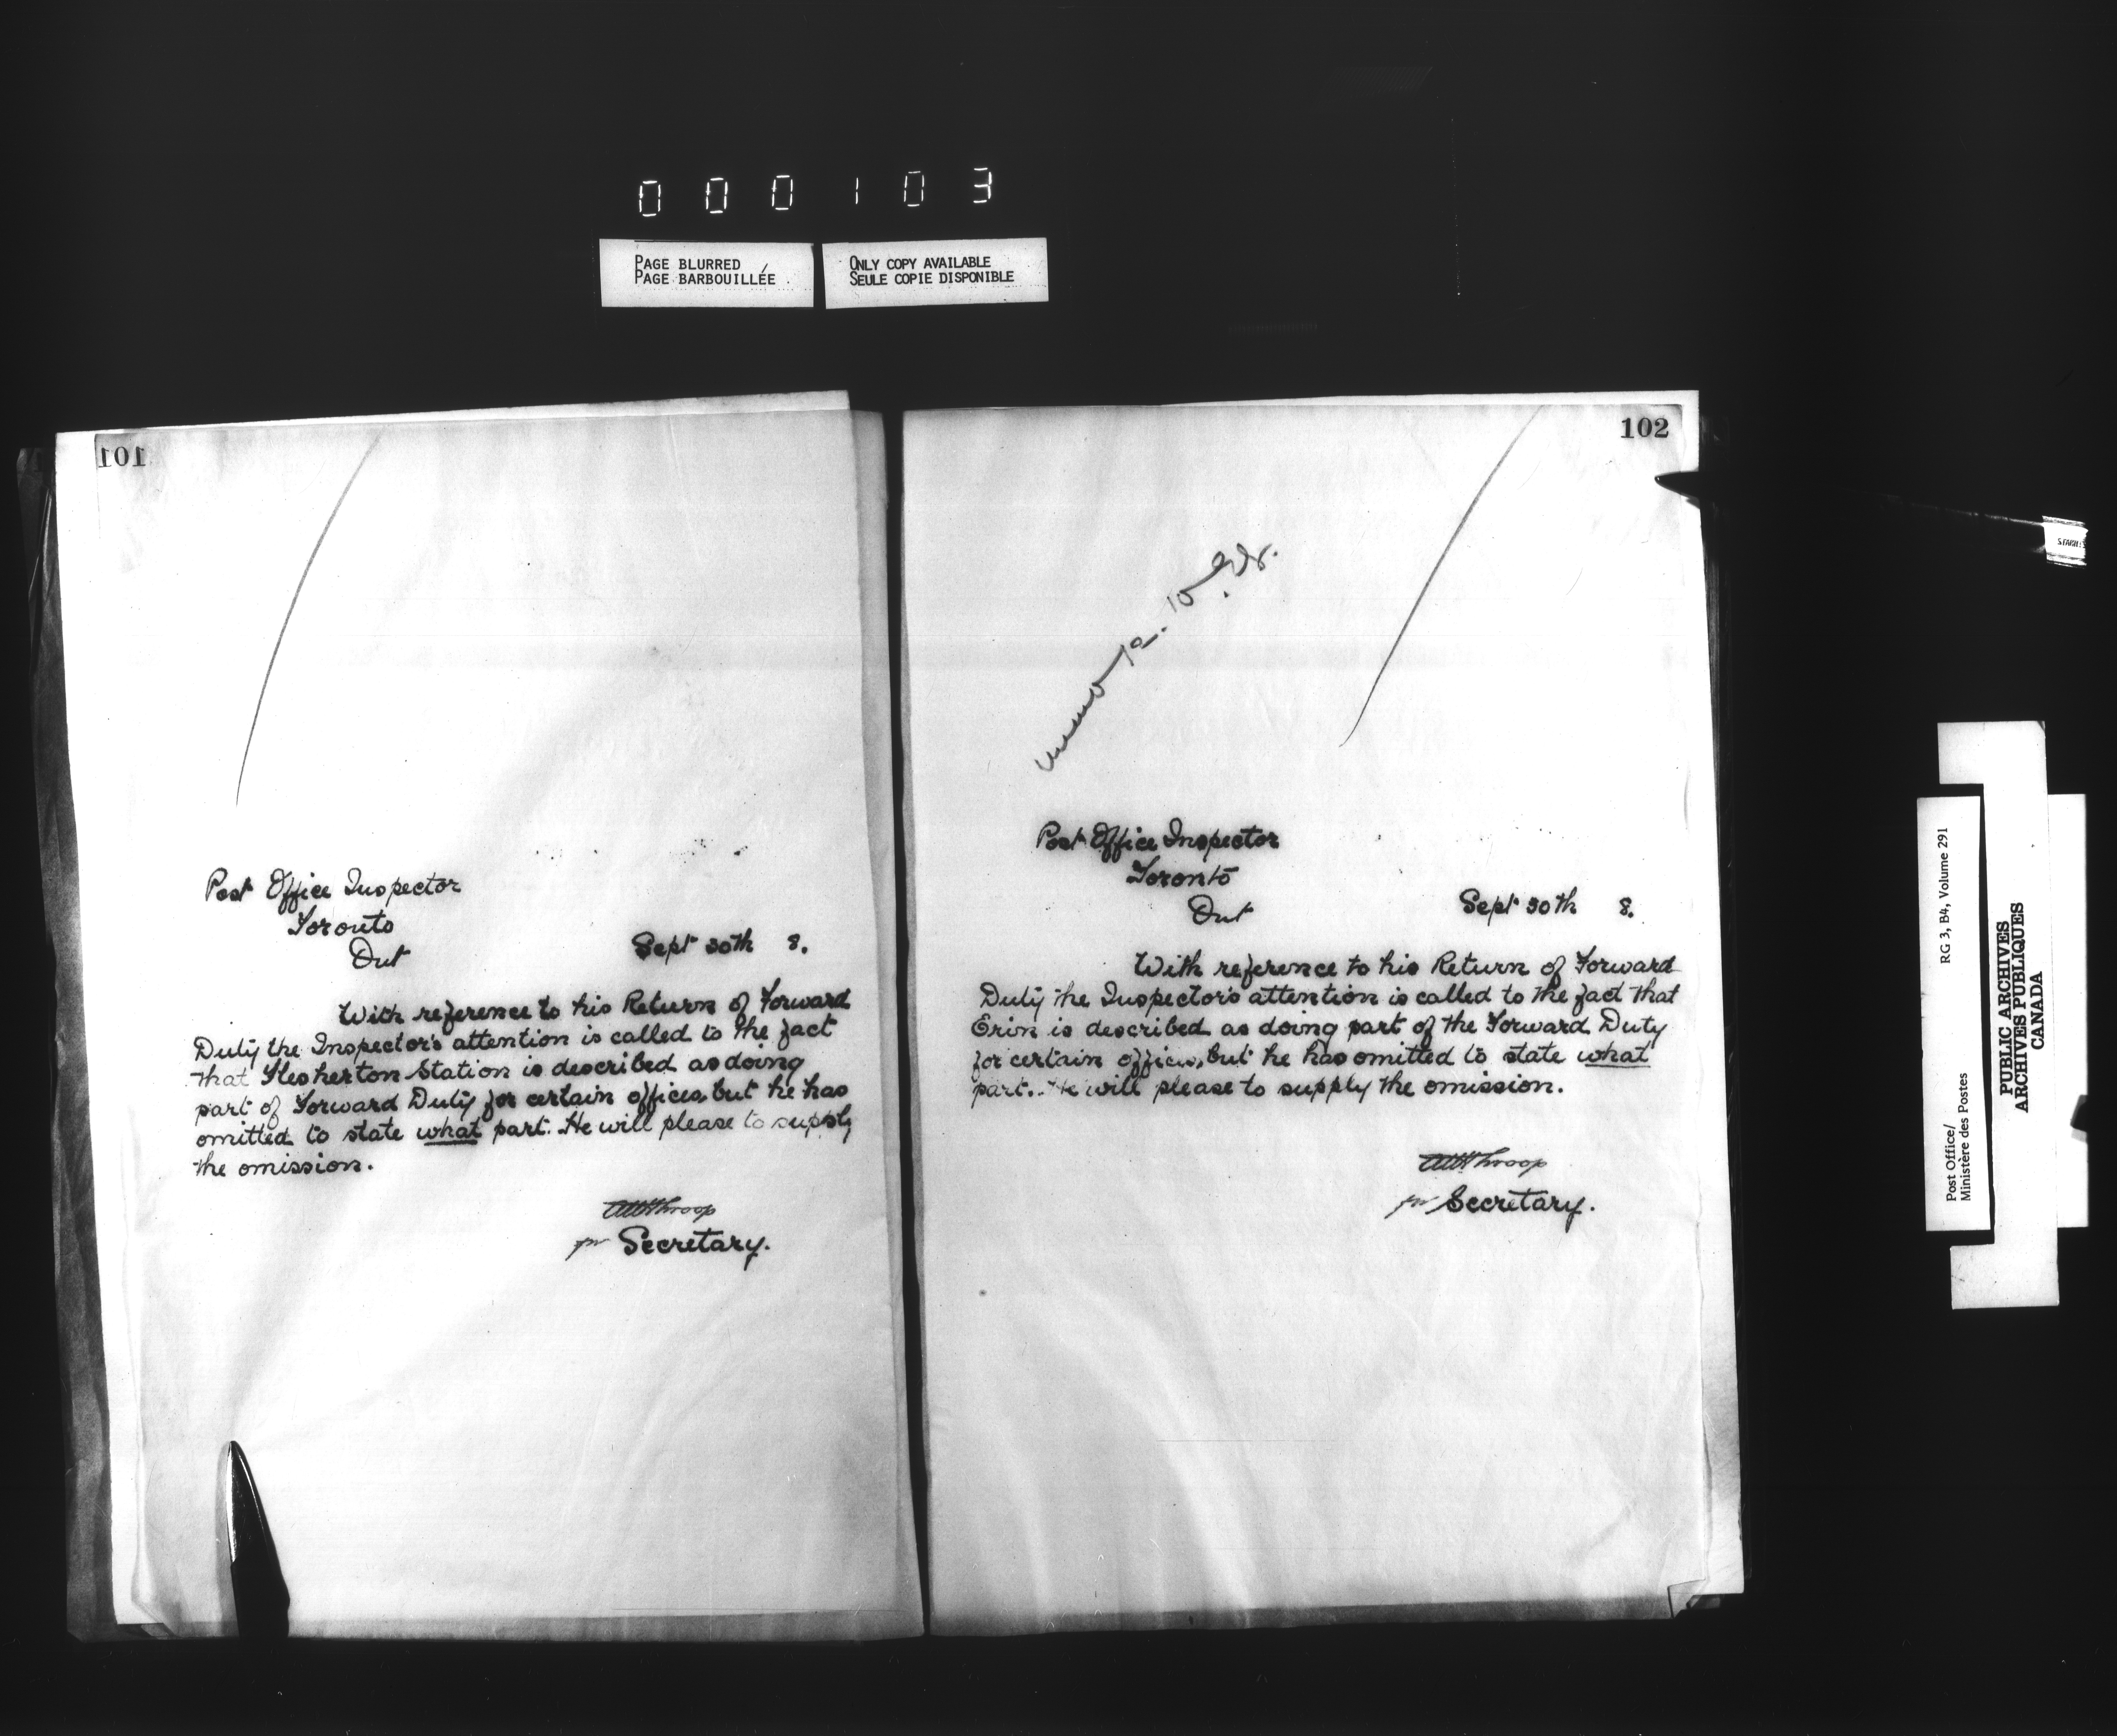 000103
PAGE BLURRED
PAGE BARBOUILLÉE
ONLY COPY AVAILABLE
SEULE COPIE DISPONIBLE
101
Post Office Inspector
Toronto
Ont
Sept 30th 8.
With reference to his Return of Forward
Duty the Inspector's attention is called to the fact
that Flesherton Station is described as doing
part of Forward Duty for certain offices, but he has
omitted to state what part. He will please to supply
the omission.
Throop
for Secretary.
102
Post Office Inspector
Toronto
Ont
Sept 30th 8.
With reference to his Return of Forward
Duty the Inspector's attention is called to the fact that
Erin is described as doing part of the Forward Duty
for certain offices, but he has omitted to state what
part. He will please to supply the omission.
Throop
for Secretary.
RG 3, B4, Volume 291
Post Office/
Ministère des Postes
PUBLIC ARCHIVES
ARCHIVES PUBLIQUES
CANADA